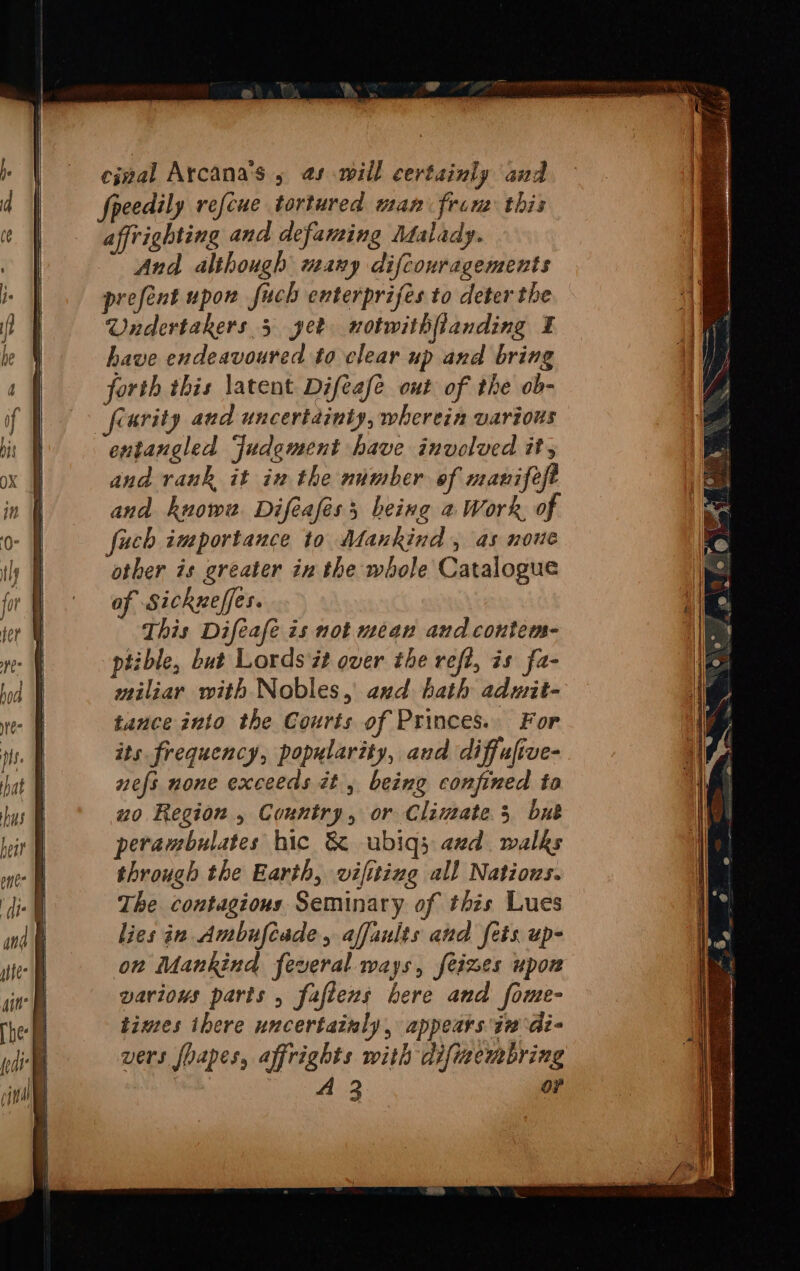 cinal Arcana's, as will certainly and
ſpeedily reſcue tortured man from this
affrighting and defaming Malady.
And although many diſcouragements
preſent upon ſuch enterpriſes to deter the
Undertakers; yet notwithſtanding I
have endeavoured to clear up and bring
forth this latent Diſeaſe out of the ob-
ſcurity and uncertainty, wherein various
entangled Judgment have involved it,
and rank it in the number of manifeſt
and known Diſeaſes; being a Work of
ſuch importance to Mankind, as none
other is greater in the whole Catalogue
of Sickneſſes.
This Diſeaſe is not mean and contem-
ptible, but Lords it over the reſt, is fa-
miliar with Nobles, and hath admit-
tance into the Courts of Princes. For
its frequency, popularity, and diffuſive-
neſs none exceeds it, being confined to
no Region, Country, or Climate; but
perambulates hic & ubiq; and walks
through the Earth, viſiting all Nations.
The contagious Seminary of this Lues
lies in Ambuſcade, aſſaults and ſets up-
on Mankind ſeveral ways, ſeizes upon
various parts, faſtens here and ſome-
times there uncertainly, appears in di-
vers ſhapes, affrights with diſmembring
A 3 or